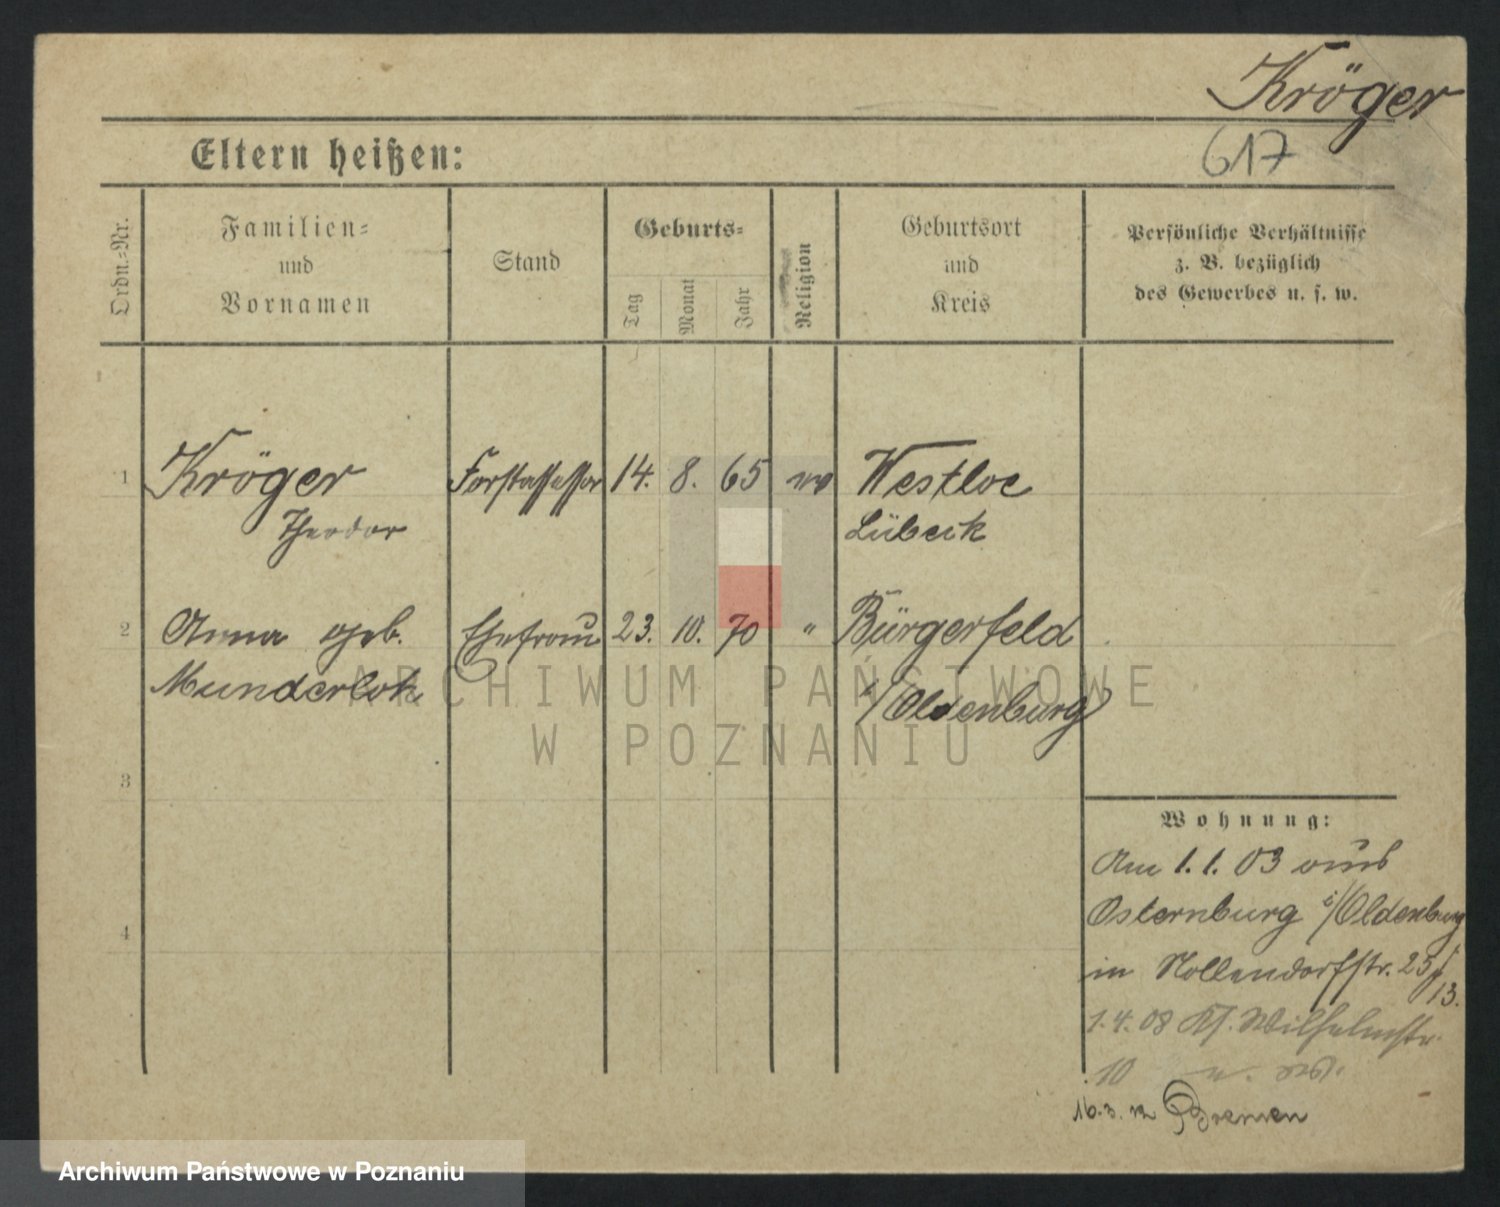 Kröger
617
Eltern heißen:
Ordn.-Nr.
Familien-
und
Vornamen
Stand
Geburts-
Tag
Monat
Jahr
Religion
Geburtsort
und
Kreis
Persönliche Verhältnisse
z. B. bezüglich
des Gewerbes u. s. w.
1 Kröger Forstassessor 14. 8. 65 ev Westloe
Theodor Lübeck
2 Anna geb. Ehefrau 23. 10. 70 " Bürgerfeld
Munderloh i/Oldenburg
3
4
ARCHIWUM PAŃSTWOWE
W POZNANIU
Wohnung:
Am 1.1.03 aus
Osternburg i/Oldenburg
in Nollendorfstr. 25/
13.
1.4.08 Kf. Wilhelmstr.
10
16.3.12 Bremen
Archiwum Państwowe w Poznaniu